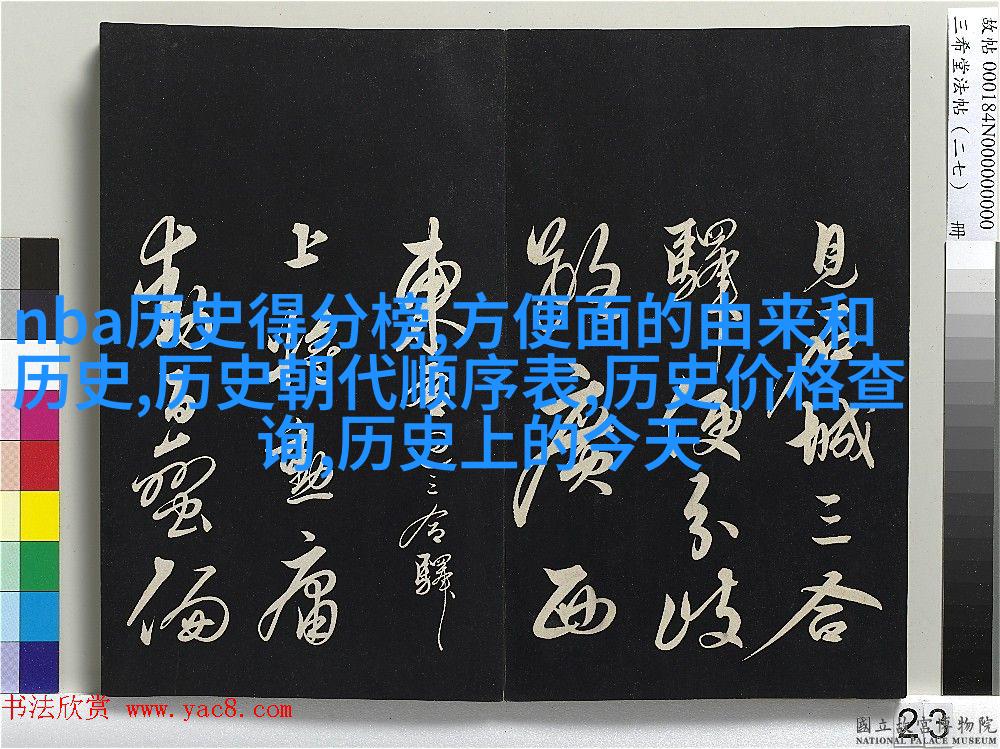 故帖 000184N000000000
三希堂法帖（二七） 冊
見城三合
驛便分歧
廣西
東
三合驛
上勳庸
nba历史得分榜,方便面的由来和
历史,历史朝代顺序表,历史价格查
询,历史上的今天
书法欣赏 www.yac8.com
23
國立故宮博物院
NATIONAL PALACE MUSEUM